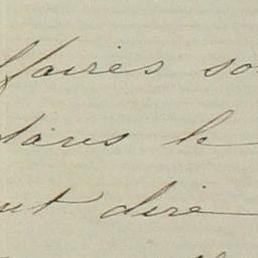 ffaires so
dans le
ut dire